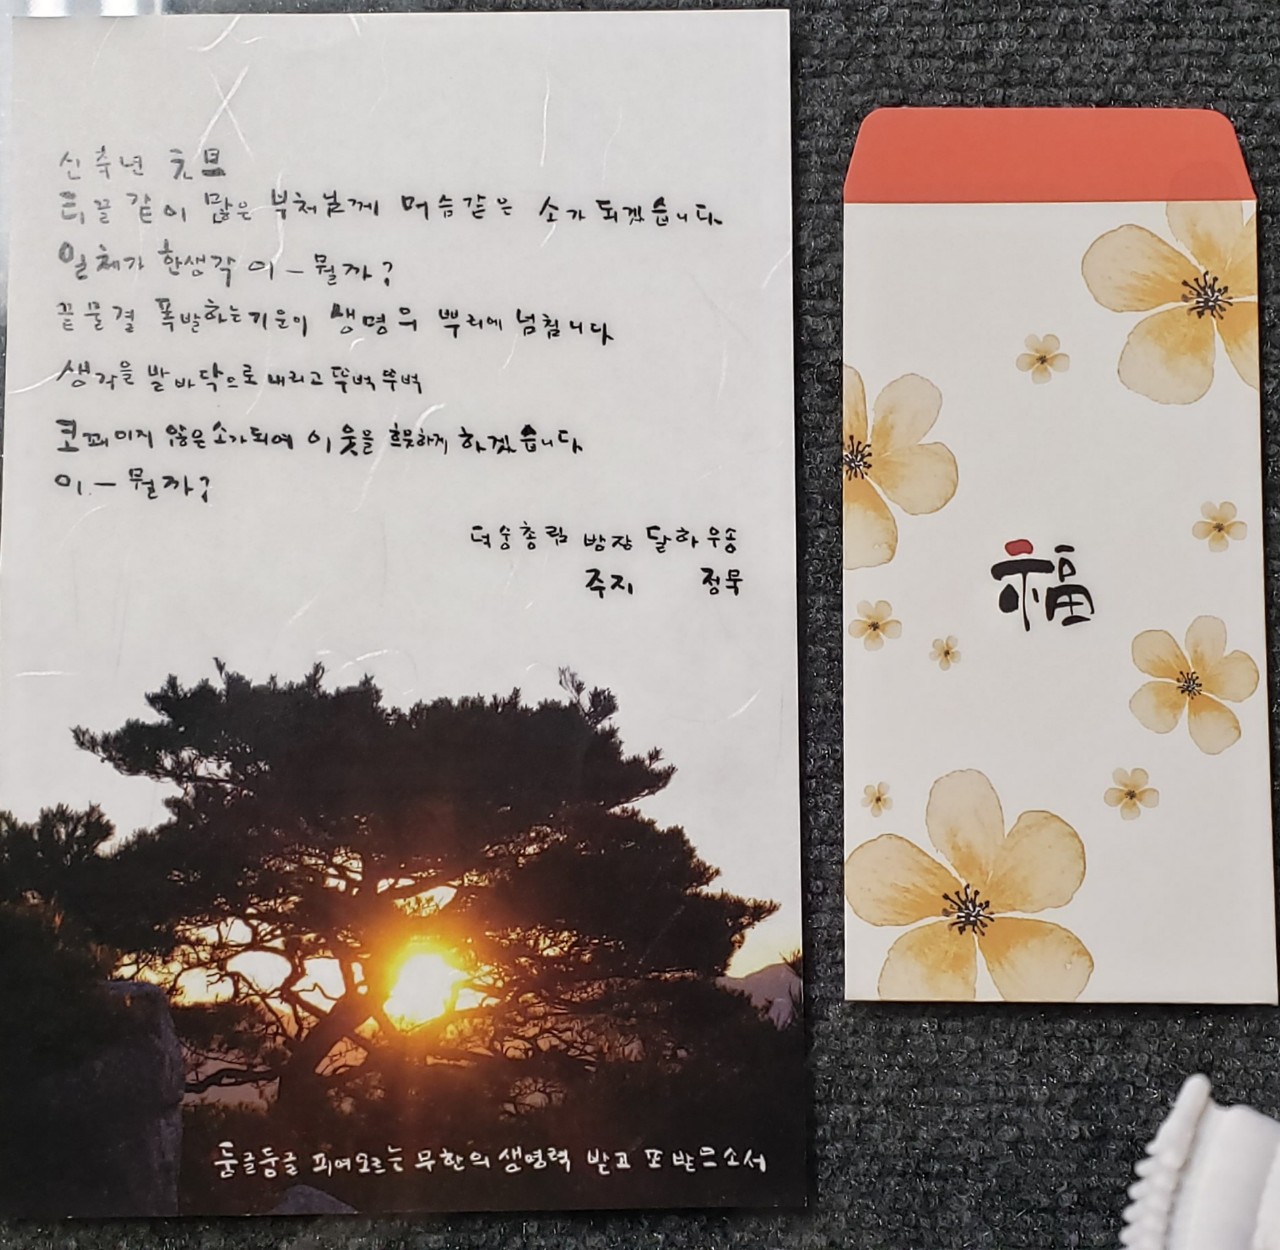 신축년 元旦
티끌같이 많은 부처님께 머슴같은 소가 되겠습니다
일체가 한생각 이 — 뭘까?
끝물결 폭발하는 기운이 생명의 뿌리에 넘칩니다
생각을 발바닥으로 내리고 뚜벅뚜벅
코꿰이지 않은 소가되어 이웃을 흐뭇하게 하겠습니다
이 — 뭘까?
덕숭총림 방장 달하우송
주지 정묵
둥글둥글 피어오르는 무한의 생명력 받고 또 받으소서
福